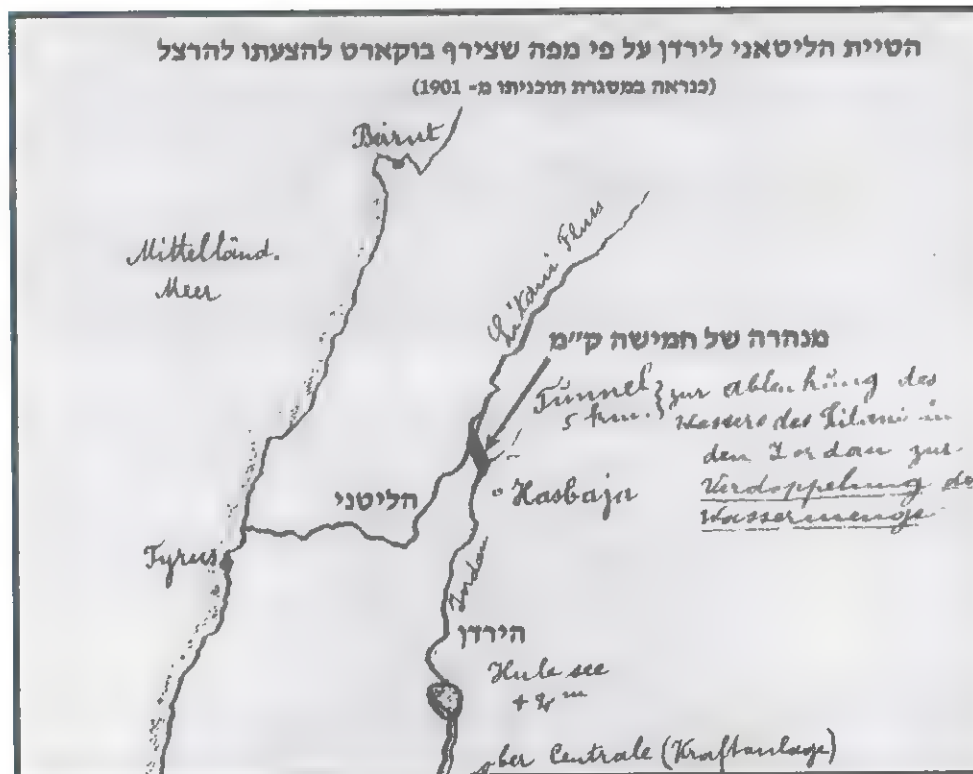 הטיית הליטאני לירדן על פי מפה שצירף בוקארט להצעתו להרצל
(כנראה במסגרת תוכניתו מ- 1901)
Beirut
Mittelländ.
Meer
Litani Fluss
מנהרה של חמישה ק״מ
Tunnel } zur Ablenkung des
5 km. } Wassers des Litani in
den Jordan zur
Verdoppelung der
Wassermenge
הליטני
Hasbaja
Tyrus
Jordan
הירדן
Hule see
+ 2 m
ber Centrale (Kraftanlage)